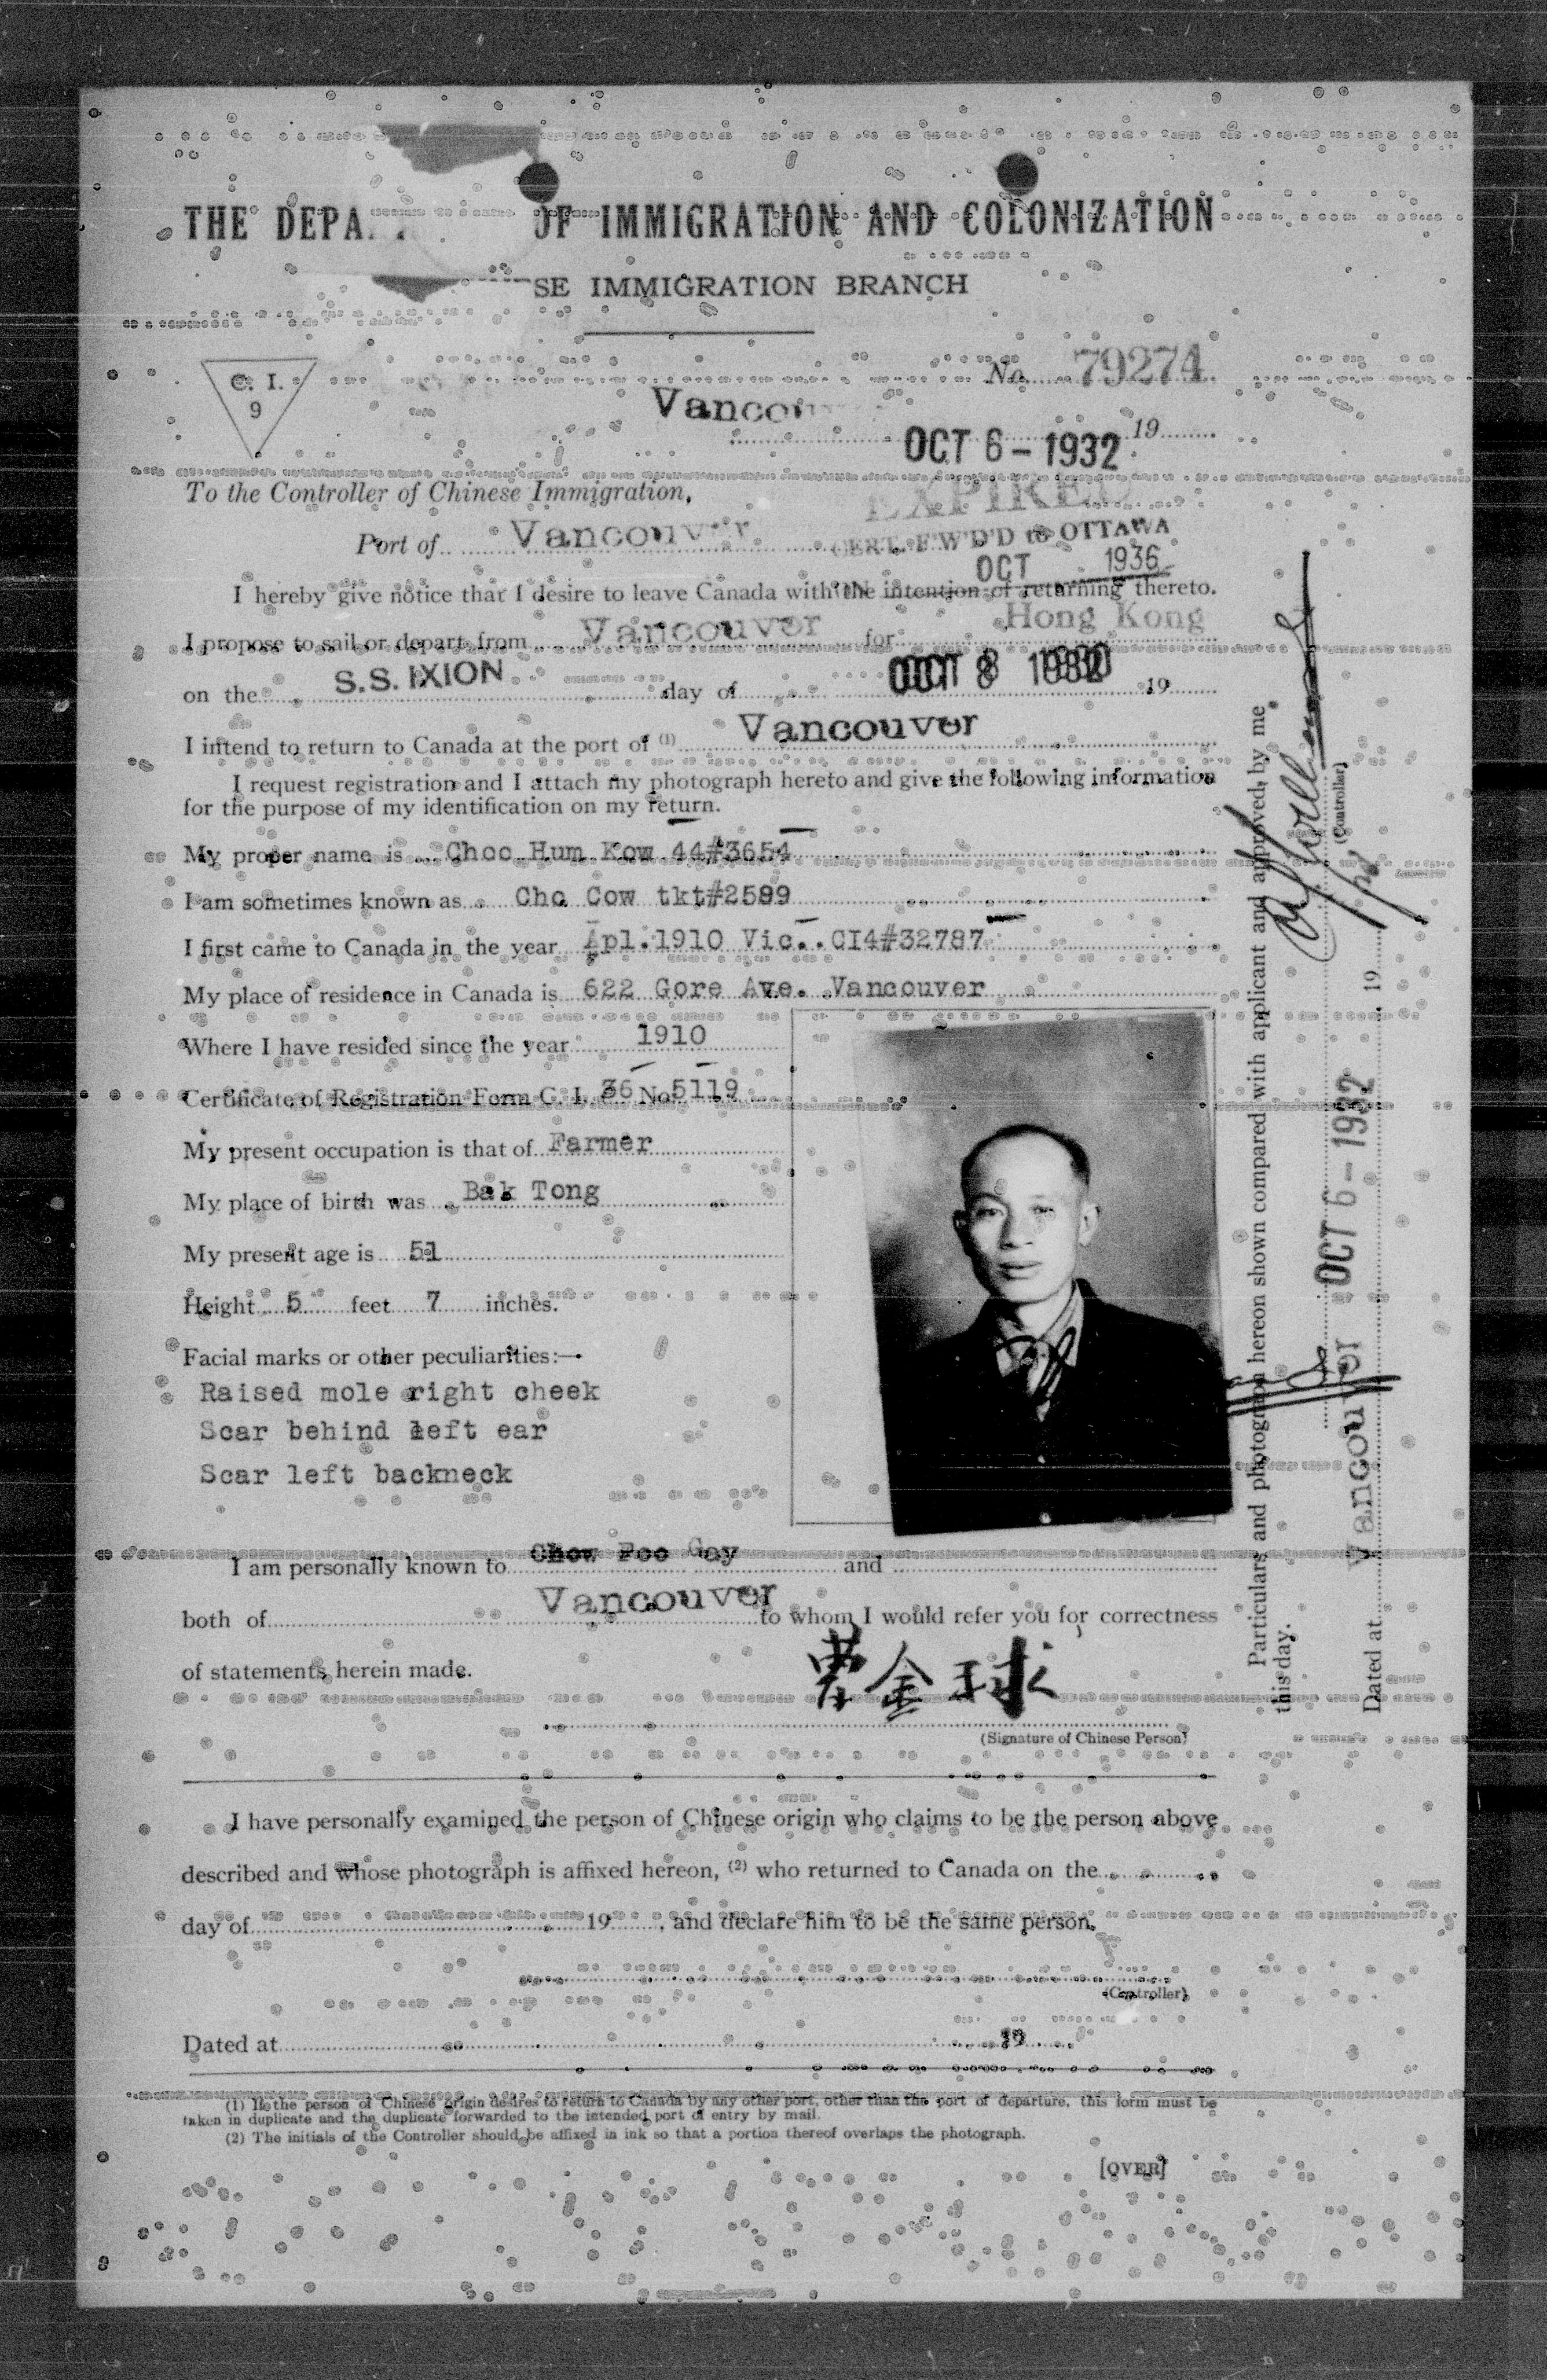 THE DEPA OF IMMIGRATION AND COLONIZATION
SE IMMIGRATION BRANCH
C. I.
9
No. 79274
Vancou
OCT 6 - 1932 19
To the Controller of Chinese Immigration,
EXPIRED
Port of Vancouver
CERT. F'W'D'D to OTTAWA
OCT 1936
I hereby give notice that I desire to leave Canada with the intention of returning thereto.
I propose to sail or depart from Vancouver for Hong Kong
on the S.S. IXION day of OCT 8 1932 19
I intend to return to Canada at the port of (1) Vancouver
I request registration and I attach my photograph hereto and give the following information
for the purpose of my identification on my return.
My proper name is Choo Hum Kow 44#3654
I am sometimes known as Cho Cow tkt#2599
I first came to Canada in the year Apl.1910 Vic. CI4#32787
My place of residence in Canada is 622 Gore Ave. Vancouver
Where I have resided since the year 1910
Certificate of Registration Form C. I. 36 No 5119
My present occupation is that of Farmer
My place of birth was Bak Tong
My present age is 51
Height 5 feet 7 inches.
Facial marks or other peculiarities:—
Raised mole right cheek
Scar behind left ear
Scar left backneck
I am personally known to Chow Foo Gay and
both of Vancouver to whom I would refer you for correctness
of statements herein made.
曹金球
(Signature of Chinese Person)
I have personally examined the person of Chinese origin who claims to be the person above
described and whose photograph is affixed hereon, (2) who returned to Canada on the
day of 19 , and declare him to be the same person.
(Controller)
Dated at 19
(1) If the person of Chinese origin desires to return to Canada by any other port, other than the port of departure, this form must be
taken in duplicate and the duplicate forwarded to the intended port of entry by mail.
(2) The initials of the Controller should be affixed in ink so that a portion thereof overlaps the photograph.
[OVER]
Particulars and photograph hereon shown compared with applicant and approved, by me
this day.
(Controller)
Dated at Vancouver OCT 6 - 1932 19